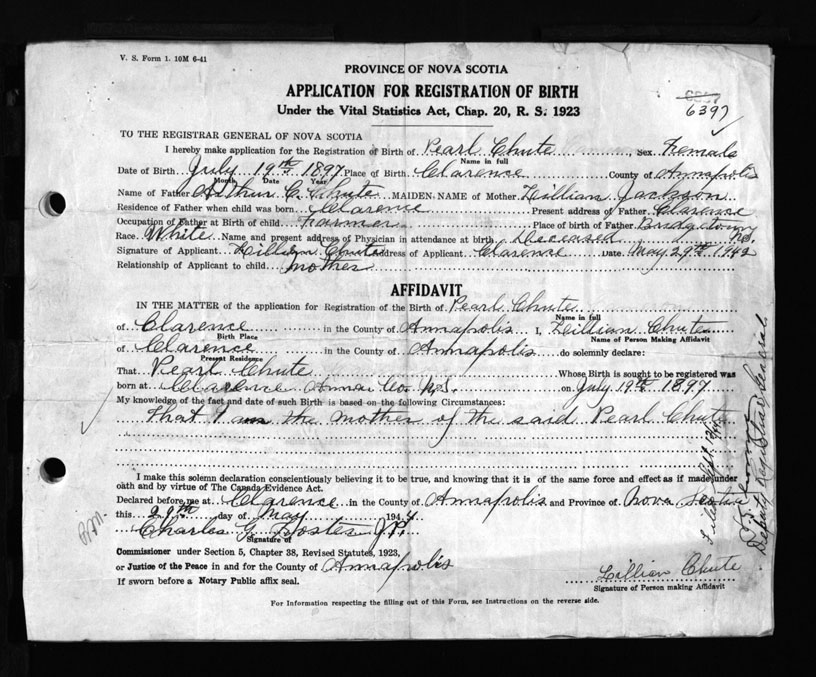 V. S. Form 1. 10M 6-41
PROVINCE OF NOVA SCOTIA
APPLICATION FOR REGISTRATION OF BIRTH
Under the Vital Statistics Act, Chap. 20, R. S. 1923
6397
TO THE REGISTRAR GENERAL OF NOVA SCOTIA
I hereby make application for the Registration of Birth of Pearl Chute, Sex Female
Name in full
Date of Birth July 19th 1897 Place of Birth Clarence County of Annapolis
Month Date Year
Name of Father Arthur C. Chute MAIDEN NAME of Mother Lillian Jackson
Residence of Father when child was born Clarence Present address of Father Clarence
Occupation of Father at Birth of child Farmer Place of birth of Father Bridgetown NS.
Race White Name and present address of Physician in attendance at birth Deceased
Signature of Applicant Lillian Chute Address of Applicant Clarence Date May 29th 1942
Relationship of Applicant to child mother
AFFIDAVIT
IN THE MATTER of the application for Registration of the Birth of Pearl Chute
Name in full
of Clarence in the County of Annapolis I, Lillian Chute
Birth Place Name of Person Making Affidavit
of Clarence in the County of Annapolis do solemnly declare:
Present Residence
That Pearl Chute Whose Birth is sought to be registered was
born at Clarence Anna. Co. N.S. on July 19th 1897
My knowledge of the fact and date of such Birth is based on the following Circumstances:
That I am the mother of the said Pearl Chute
I make this solemn declaration conscientiously believing it to be true, and knowing that it is of the same force and effect as if made under
oath and by virtue of The Canada Evidence Act.
Declared before me at Clarence in the County of Annapolis and Province of Nova Scotia
this 29th day of May 194
Charles G. Foster J.P.
Signature of
Commissioner under Section 5, Chapter 38, Revised Statutes, 1923,
or Justice of the Peace in and for the County of Annapolis
If sworn before a Notary Public affix seal.
Lillian Chute
Signature of Person making Affidavit
For Information respecting the filling out of this Form, see Instructions on the reverse side.
Filed Sept.
Deputy Registrar General